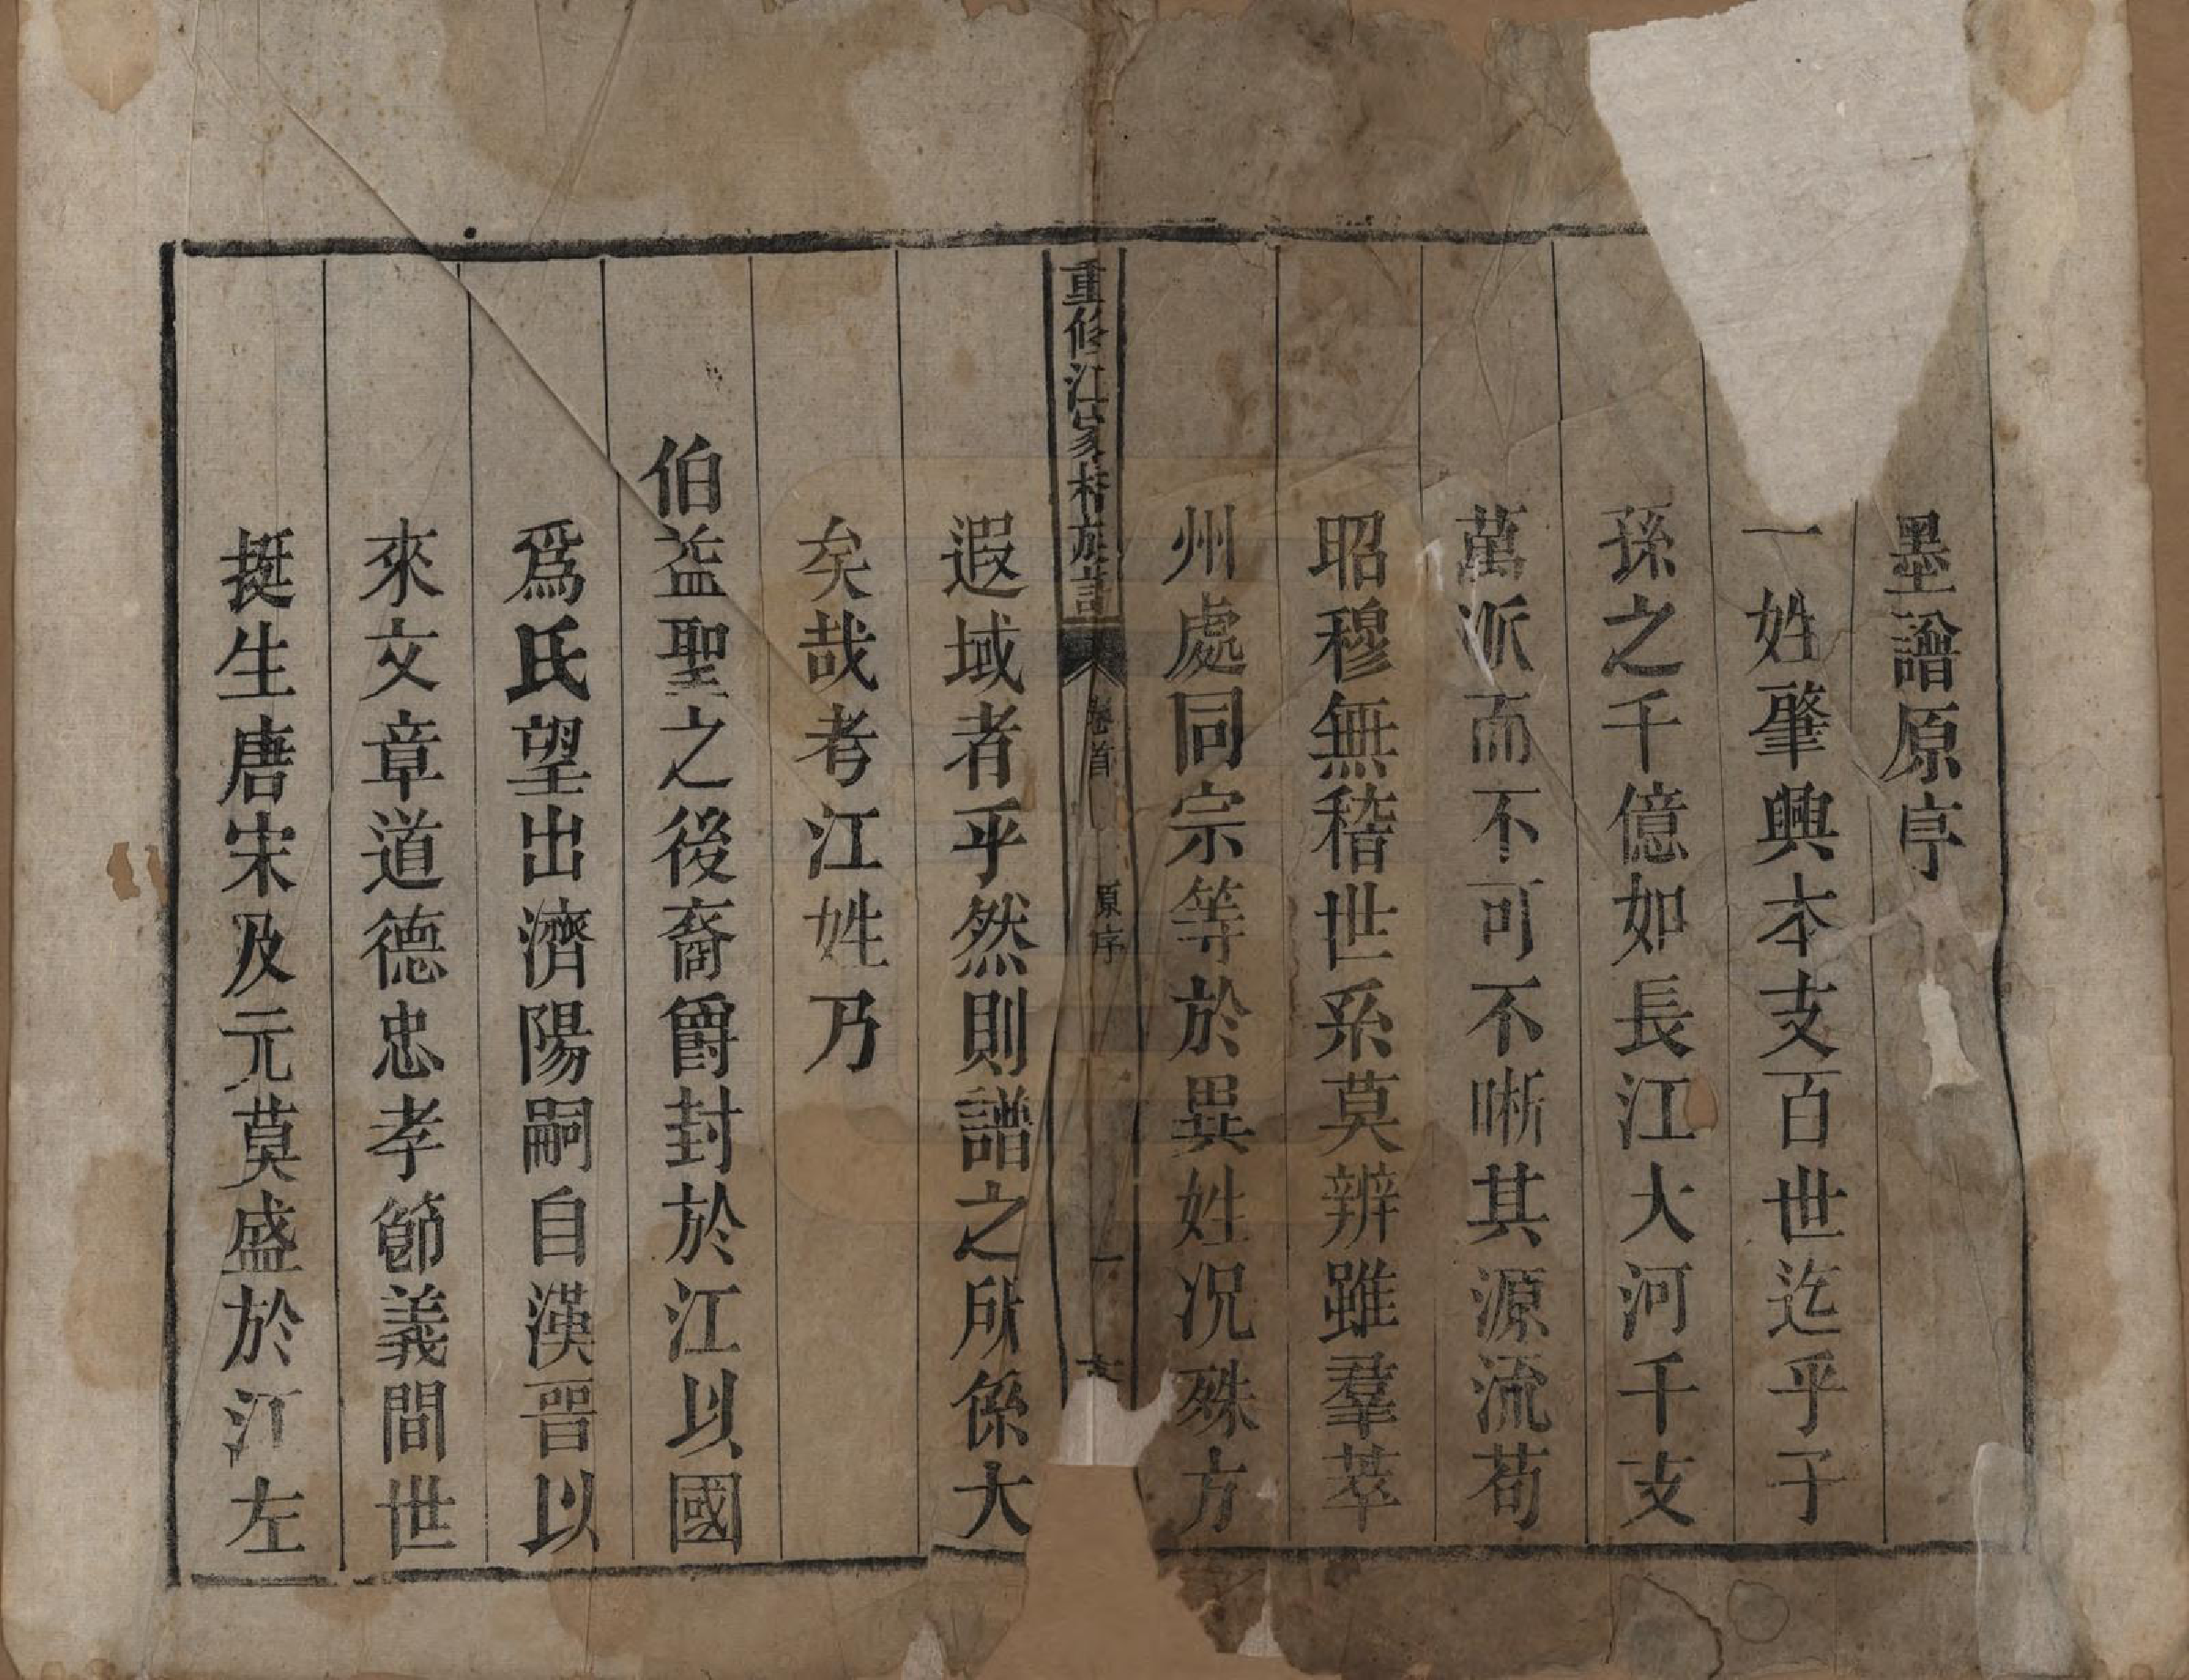 墨譜原序
一姓肇興本支百世迄乎子
孫之千億如長江大河千支
萬派而不可不晰其源流苟
昭穆無稽世系莫辨雖羣萃
州處同宗等於異姓况殊方
重修江家村族譜 卷首 原序 一
遐域者乎然則譜之所係大
矣哉考江姓乃
伯益聖之後裔爵封於江以國
爲氏望出濟陽嗣自漢晉以
來文章道德忠孝節義間世
挺生唐宋及元莫盛於江左